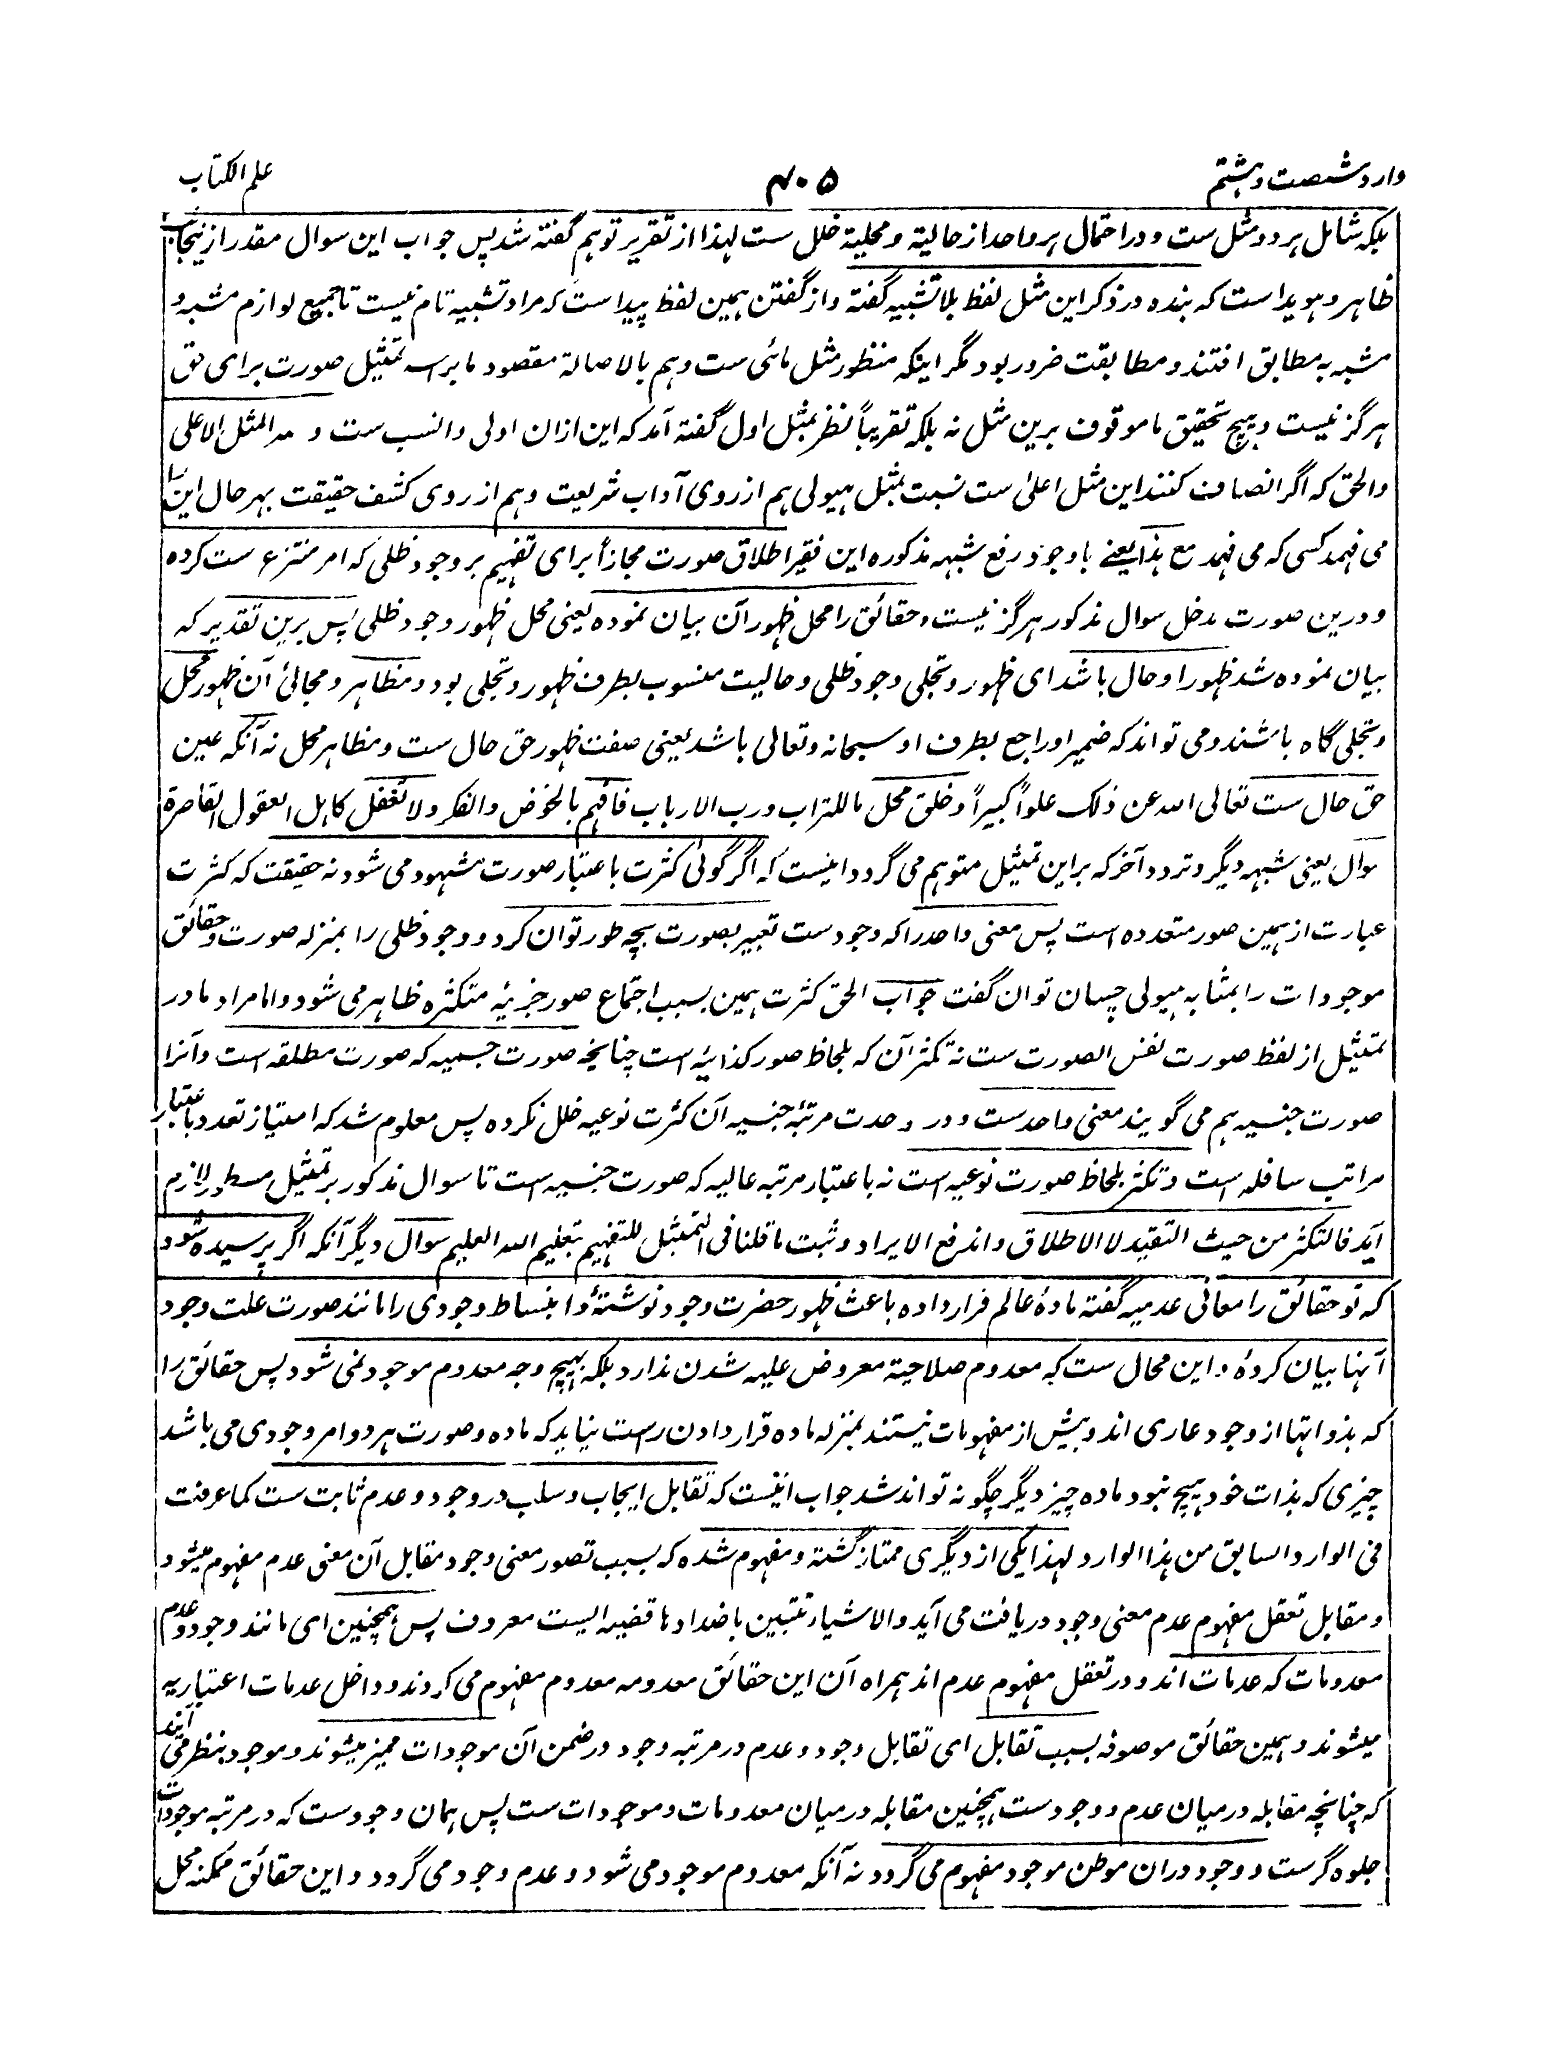 وارد شصت و هشتم
۴۰۵
علم الکتاب
بلکه شامل هر دو مثل ست و در احتمال هر واحد از حالیة و محلیة خلل ست لهذا از تقریر توهم گفته شد پس جواب این سوال مقدر ازینجا
ظاهر و هویداست که بنده در ذکر این مثل لفظ بلا تشبیه گفته و از گفتن همین لفظ پیداست که مراد تشبیه تام نیست تا جمیع لوازم مشبه و
مشبه به مطابق افتند و مطابقت ضرور بود مگر اینکه منظور مثل مائی ست و هم بالاصالة مقصود ما برسه تمثیل صورت برای حق
هرگز نیست و هیچ تحقیق ما موقوف برین مثل نه بلکه تقریباً نظر بمثل اول گفته آمد که این ازان اولی و انسب ست و لله المثل الاعلی
والحق که اگر انصاف کنند این مثل اعلی ست نسبت بمثل هیولی هم از روی آداب شریعت و هم از روی کشف حقیقت بهر حال این را
می فهمد کسی که می فهمد مع هذا یعنے باوجود رفع شبهه مذکوره این فقیر اطلاق صورت مجازاً برای تفهیم بر وجود ظلی که امر منتزع ست کرده
و درین صورت مدخل سوال مذکور هرگز نیست و حقائق را محل ظهور آن بیان نموده یعنی محل ظهور وجود ظلی پس برین تقدیر که
بیان نموده شد ظهور او حال باشد ای ظهور و تجلی وجود ظلی و حالیت منسوب بطرف ظهور و تجلی بود و مظاهر و مجالئ آن ظهور محل
و تجلی گاه باشند و می تواند که ضمیر او راجع بطرف او سبحانه و تعالی باشد یعنی صفت ظهور حق حال ست و مظاهر محل نه آنکه عین
حق حال ست تعالی الله عن ذلک علواً کبیراً و خلق محل ما للتراب و رب الارباب فافهم بالخوض والفکر و لا تغفل کاهل العقول القاصرة
سوال یعنی شبهه دیگر و تردد آخر که بر این تمثیل متوهم می گردد اینست که اگر گوئی کثرت باعتبار صورت مشهود می شود نه حقیقت که کثرت
عبارت از همین صور متعدده است پس معنی واحد را که وجود ست تعبیر بصورت بچه طور توان کرد و وجود ظلی را بمنزله صورت و حقائق
موجودات را بمثابه هیولی چسان توان گفت جواب الحق کثرت همین بسبب اجتماع صور جزئیه متکثره ظاهر می شود و اما مراد ما در
تمثیل از لفظ صورت نفس الصورت ست نه تکثر آن که بلحاظ صور کذائیه است چنانچه صورت جسمیه که صورت مطلقه است و آنرا
صورت جنسیه هم می گویند معنی واحد ست و در وحدت مرتبۀ جنسیه آن کثرت نوعیه خلل نکرده پس معلوم شد که امتیاز تعدد باعتبار
مراتب سافله است و تکثر بلحاظ صورت نوعیه است نه باعتبار مرتبه عالیه که صورت جنسیه است تا سوال مذکور بر تمثیل مسطور لازم
آید فالتکثر من حیث التقید لا الاطلاق و اندفع الایراد و ثبت ما قلنا فی التمثیل للتفهیم بتعلیم الله العلیم سوال دیگر آنکه اگر پرسیده شود
که تو حقائق را معانی عدمیه گفته مادۀ عالم قرار داده باعث ظهور حضرت وجود نوشتۀ و انبساط وجودی را مانند صورت علت وجود
آنها بیان کردۀ و این محال ست که معدوم صلاحیة معروض علیه شدن ندارد بلکه بهیچ وجه معدوم موجود نمی شود پس حقائق را
که بذواتها از وجود عاری اند و بیش از مفهومات نیستند بمنزله ماده قرار دادن راست نیاید که ماده و صورت هر دو امر وجودی می باشد
چیزی که بذات خود هیچ نبود ماده چیز دیگر چگونه تواند شد جواب انیست که تقابل ایجاب و سلب در وجود و عدم ثابت ست کما عرفت
فی الوارد السابق من هذا الوارد لهذا یکی از دیگری ممتاز گشته و مفهوم شده که بسبب تصور معنی وجود مقابل آن معنی عدم مفهوم میشود
و مقابل تعقل مفهوم عدم معنی وجود دریافت می آید والاشیاء تتبین باضدادها قضیه الیست معروف پس همچنین ای مانند وجود و عدم
معدومات که عدمات اند و در تعقل مفهوم عدم اند همراه آن این حقائق معدومه معدوم مفهوم می گردند و داخل عدمات اعتباریه
میشوند و همین حقائق موصوفه بسبب تقابل ای تقابل وجود و عدم در مرتبه وجود در ضمن آن موجودات ممیز میشوند و موجود بنظر می آیند
که چنانچه مقابله در میان عدم و وجود ست همچنین مقابله در میان معدومات و موجودات ست پس همان وجود ست که در مرتبه موجودات
جلوه گرست و وجود دران موطن موجود مفهوم می گردد نه آنکه معدوم موجود می شود و عدم وجود می گردد و این حقائق ممکنه محل